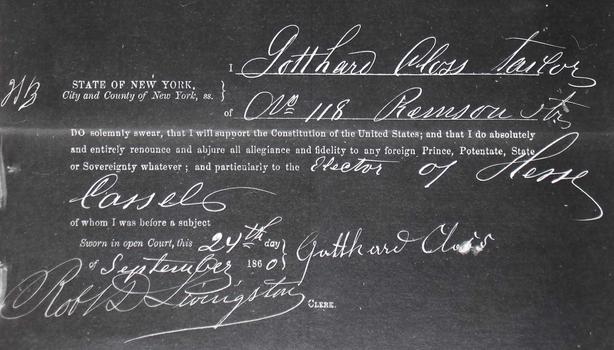 I Gotthard Closs tailor
STATE OF NEW YORK,
City and County of New York, ss.
of No 118 Str
DO solemnly swear, that I will support the Constitution of the United States; and that I do absolutely
and entirely renounce and abjure all allegiance and fidelity to any foreign Prince, Potentate, State
or Sovereignty whatever; and particularly to the Elector of Hesse
Cassel
of whom I was before a subject
Sworn in open Court, this 24th day
of September 1860 Gotthard Closs
Robt D Livingston CLERK.